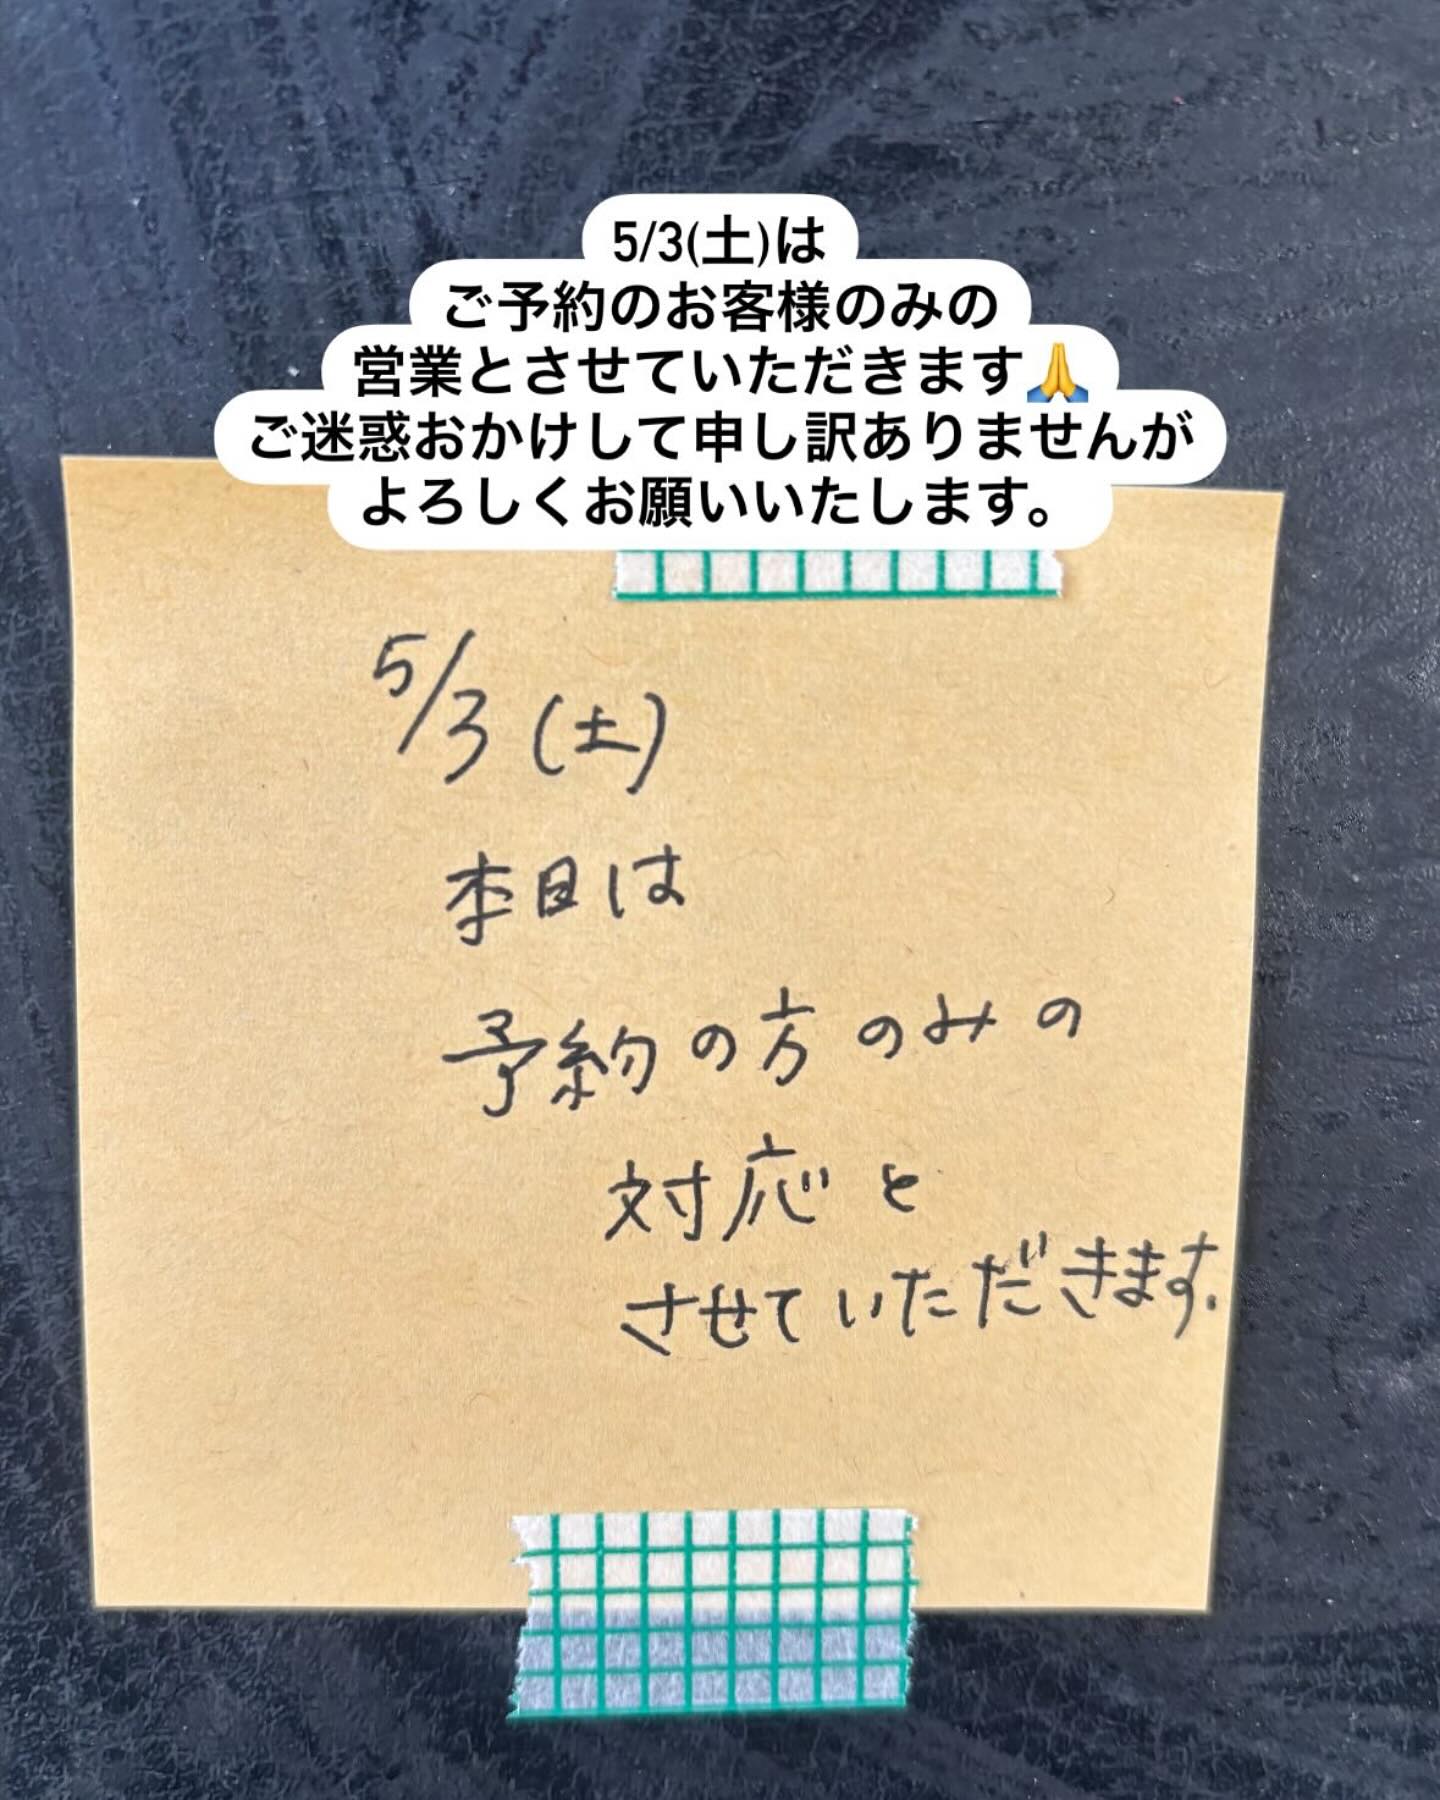 5/3(土)は
ご予約のお客様のみの
営業とさせていただきます🙏
ご迷惑おかけして申し訳ありませんが
よろしくお願いいたします。
5/3(土)
本日は
予約の方のみの
対応と
させていただきます.